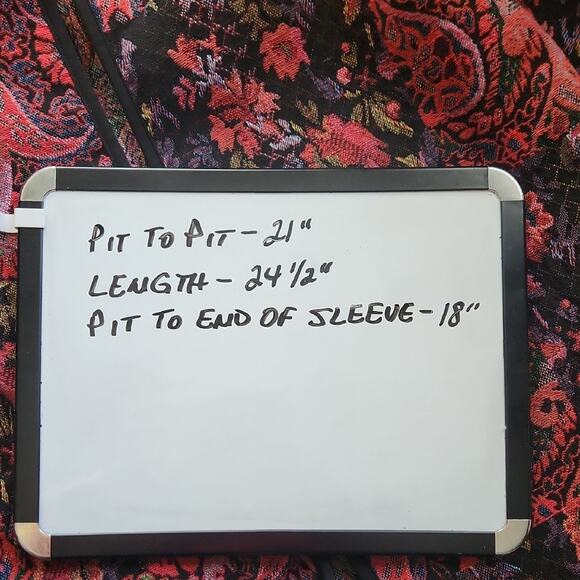 PIT TO PIT - 21"
LENGTH - 24 1/2"
PIT TO END OF SLEEVE - 18"